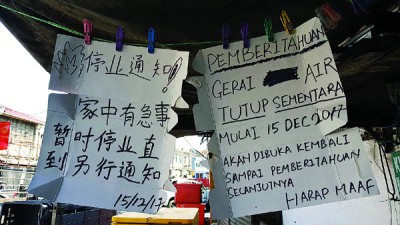 停业通知!
家中有急事
暂时停业直
到另行通知
15/12/17
PEMBERITAHUAN
GERAI AIR
TUTUP SEMENTARA
MULAI 15 DEC 2017
AKAN DIBUKA KEMBALI
SAMPAI PEMBERITAHUAN
SELANJUTNYA
HARAP MAAF